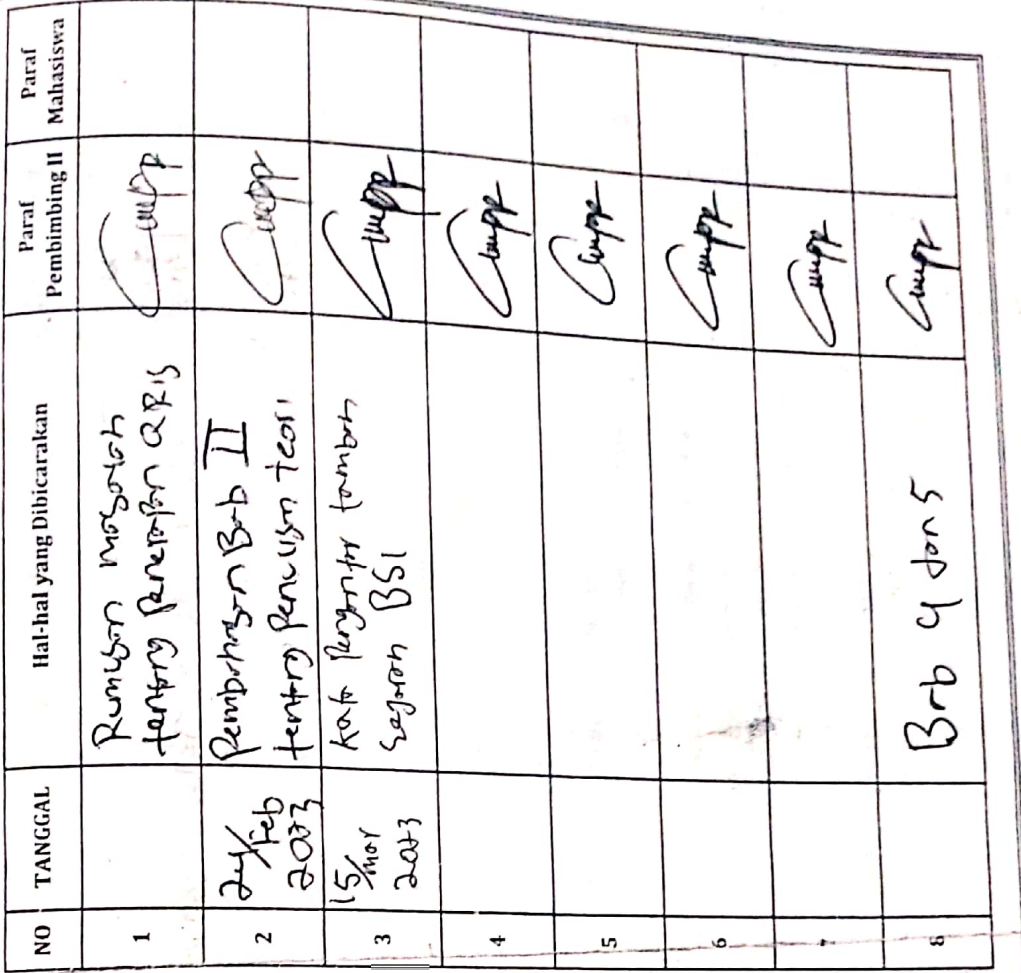 NO TANGGAL Hal-hal yang Dibicarakan Paraf Pembimbing II Paraf Mahasiswa
1 Rumusan masalah
tentang Penerapan QRIS
2 24/Feb 2023 Pembahasan Bab II
tentang Penulisan teori
3 15/mar 2023 Kata Pengantar tambah
Sejarah BSI
4
5
6
7
8 Bab 4 dan 5